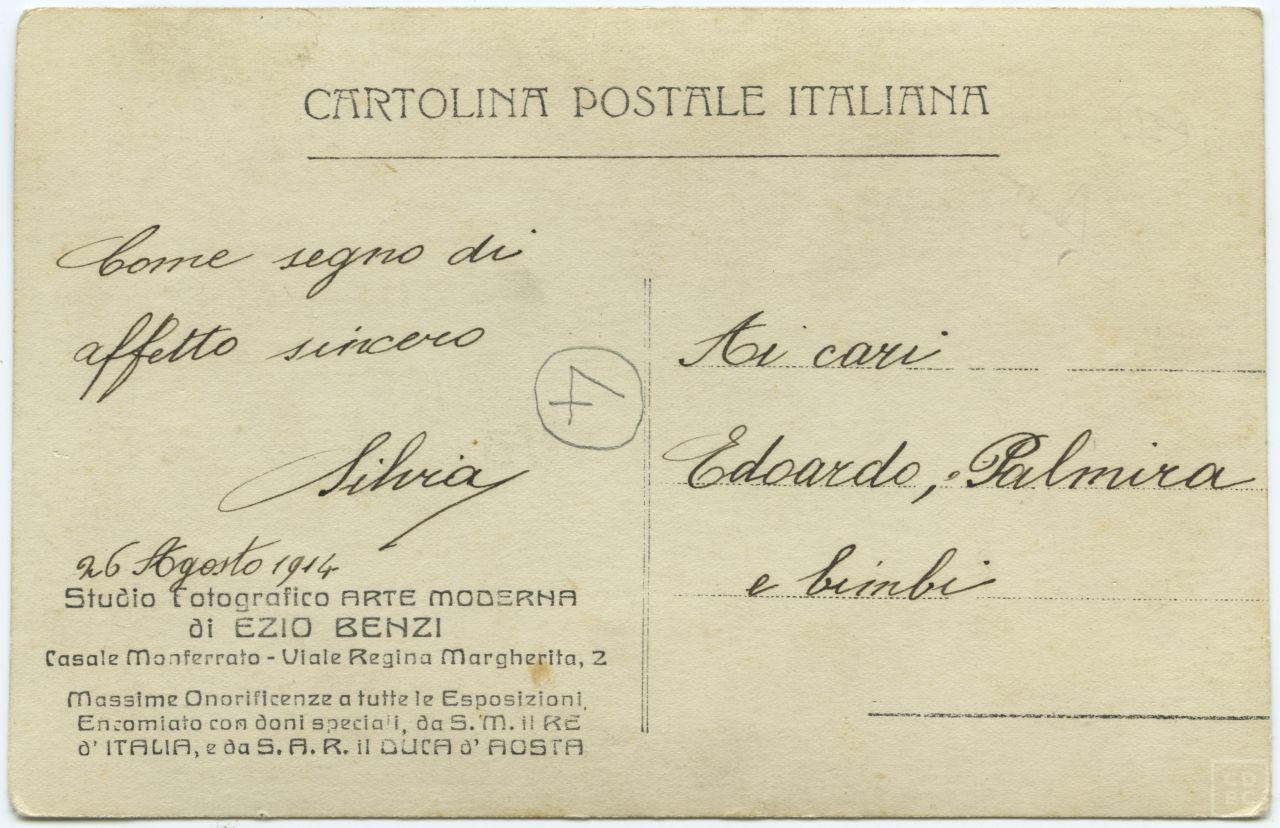 CARTOLINA POSTALE ITALIANA
Come segno di
affetto sincero
Silvia
26 Agosto 1914
Studio Fotografico ARTE MODERNA
di EZIO BENZI
Casale Monferrato - Viale Regina Margherita, 2
Massime Onorificenze a tutte le Esposizioni,
Encomiato con doni speciali, da S. M. il RE
d' ITALIA, e da S. A. R. il DUCA d' AOSTA
4
Ai cari
Edoardo, Palmira
e bimbi
CDEC